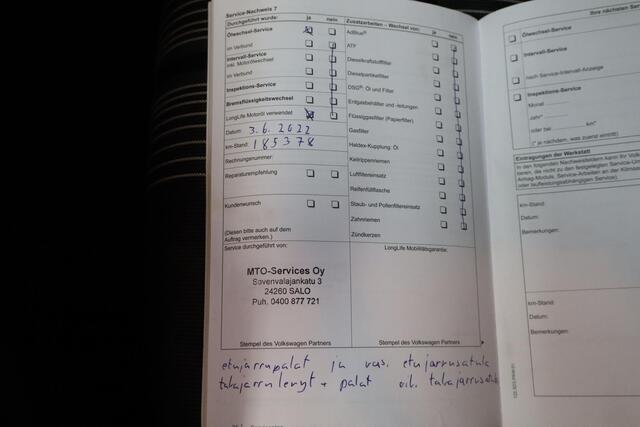 Service-Nachweis 7
Durchgeführt wurde: ja nein
Ölwechsel-Service
im Verbund
Intervall-Service
inkl. Motorölwechsel
im Verbund
Inspektions-Service
Bremsflüssigkeitswechsel
LongLife Motoröl verwendet
Datum: 3.6.2022
km-Stand: 185378
Rechnungsnummer:
Reparaturempfehlung
Kundenwunsch
(Diesen bitte auch auf dem
Auftrag vermerken.)
Service durchgeführt von:
MTO-Services Oy
Savenvalajankatu 3
24260 SALO
Puh. 0400 877 721
Stempel des Volkswagen Partners
Zusatzarbeiten – Wechsel von: ja nein
AdBlue®
ATF
Dieselkraftstofffilter
Dieselpartikelfilter
DSG®: Öl und Filter
Erdgasbehälter und -leitungen
Flüssiggasfilter (Papierfilter)
Gasfilter
Haldex-Kupplung: Öl
Keilrippenriemen
Luftfiltereinsatz
Reifenfüllflasche
Staub- und Pollenfiltereinsatz
Zahnriemen
Zündkerzen
LongLife Mobilitätsgarantie:
Stempel des Volkswagen Partners
etujarrupalat ja vas. etujarrusatula
takajarrulevyt + palat oik. takajarrusatula
Ihre nächsten
Ölwechsel-Service
Intervall-Service
nach Service-Intervall-Anzeige
Inspektions-Service
Monat
Jahr*
oder bei km*
(* je nachdem, was zuerst eintritt)
Eintragungen der Werkstatt
In den folgenden Nachweisfeldern kann Ihr Volk
km-Stand:
Datum:
Bemerkungen:
km-Stand:
Datum:
Bemerkungen: